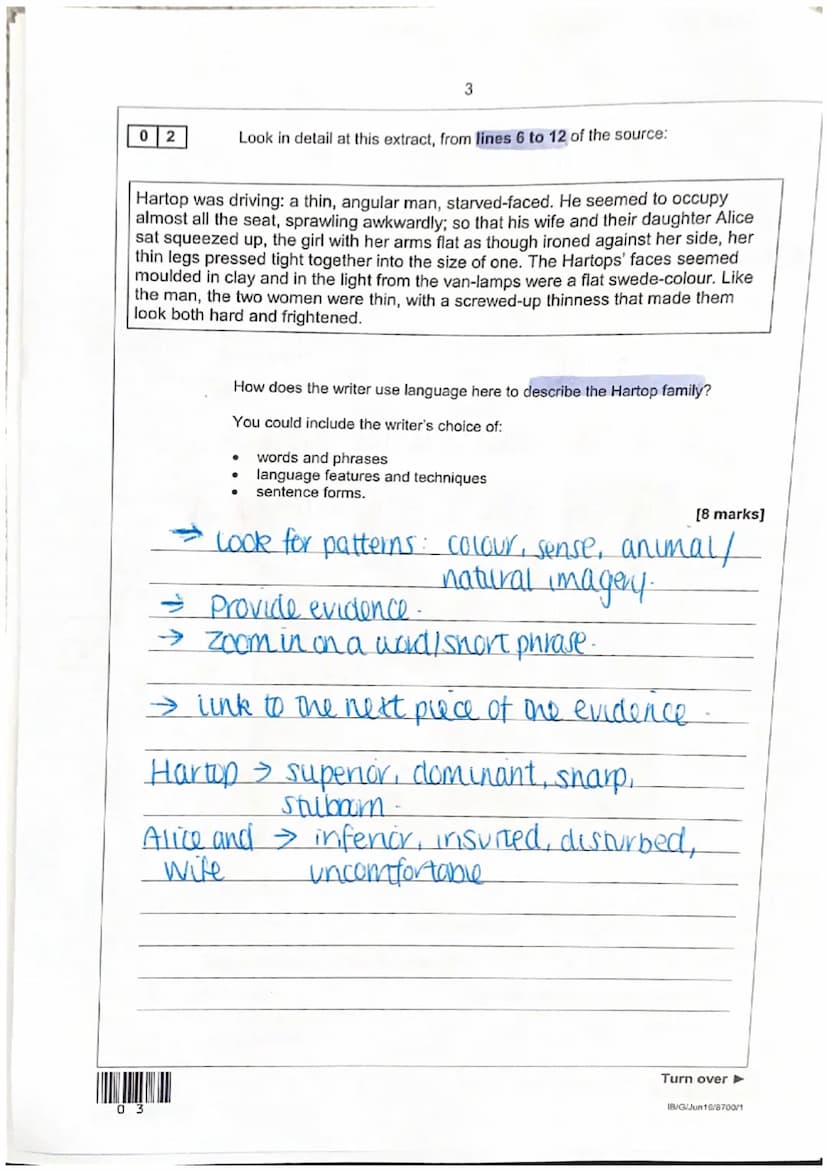 3
0 2 Look in detail at this extract, from lines 6 to 12 of the source:
Hartop was driving: a thin, angular man, starved-faced. He seemed to occupy
almost all the seat, sprawling awkwardly; so that his wife and their daughter Alice
sat squeezed up, the girl with her arms flat as though ironed against her side, her
thin legs pressed tight together into the size of one. The Hartops' faces seemed
moulded in clay and in the light from the van-lamps were a flat swede-colour. Like
the man, the two women were thin, with a screwed-up thinness that made them
look both hard and frightened.
How does the writer use language here to describe the Hartop family?
You could include the writer's choice of:
• words and phrases
• language features and techniques
• sentence forms.
[8 marks]
→ Look for patterns: colour, sense, animal/
natural imagery.
→ Provide evidence.
→ Zoom in on a word/short phrase.
→ link to the next piece of the evidence.
Hartop → superior, dominant, sharp,
stuborn.
Alice and → inferior, insured, disturbed,
Wife uncomfortable
Turn over ►
0 3
IB/G/Jun16/8700/1